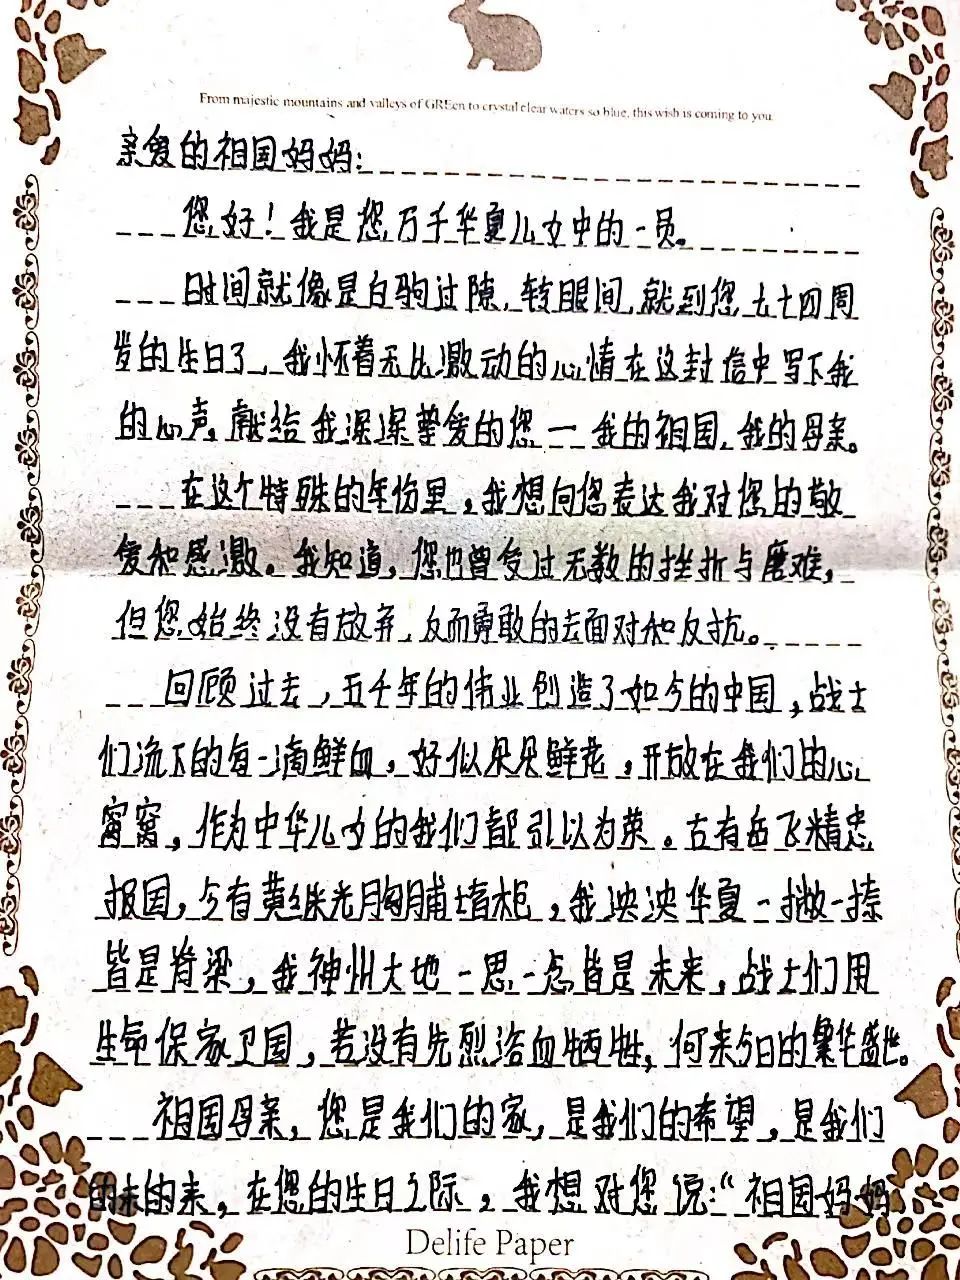 From majestic mountains and valleys of GREen to crystal clear waters so blue, this wish is coming to you
亲爱的祖国妈妈：
您好！我是您万千华夏儿女中的一员。
时间就像是白驹过隙，转眼间，就到您七十四周
岁的生日了，我怀着无比激动的心情在这封信中写下我
的心声，献给我深深挚爱的您一一我的祖国，我的母亲。
在这个特殊的年份里，我想向您表达我对您的敬
爱和感激。我知道，您也曾受过无数的挫折与磨难，
但您始终没有放弃，反而勇敢的去面对和反抗。
回顾过去，五千年的伟业创造了如今的中国，战士
们流下的每一滴鲜血，好似朵朵鲜花，开放在我们的心
窝窝，作为中华儿女的我们都引以为荣。古有岳飞精忠
报国，今有黄继光胸脯堵枪，我泱泱华夏一撇一捺
皆是脊梁，我神州大地一思一念皆是未来，战士们用
生命保家卫国，若没有先烈浴血牺牲，何来今日的繁华盛世。
祖国母亲，您是我们的家，是我们的希望，是我们
的未的来，在您的生日之际，我想对您说：“祖国妈妈
Delife Paper